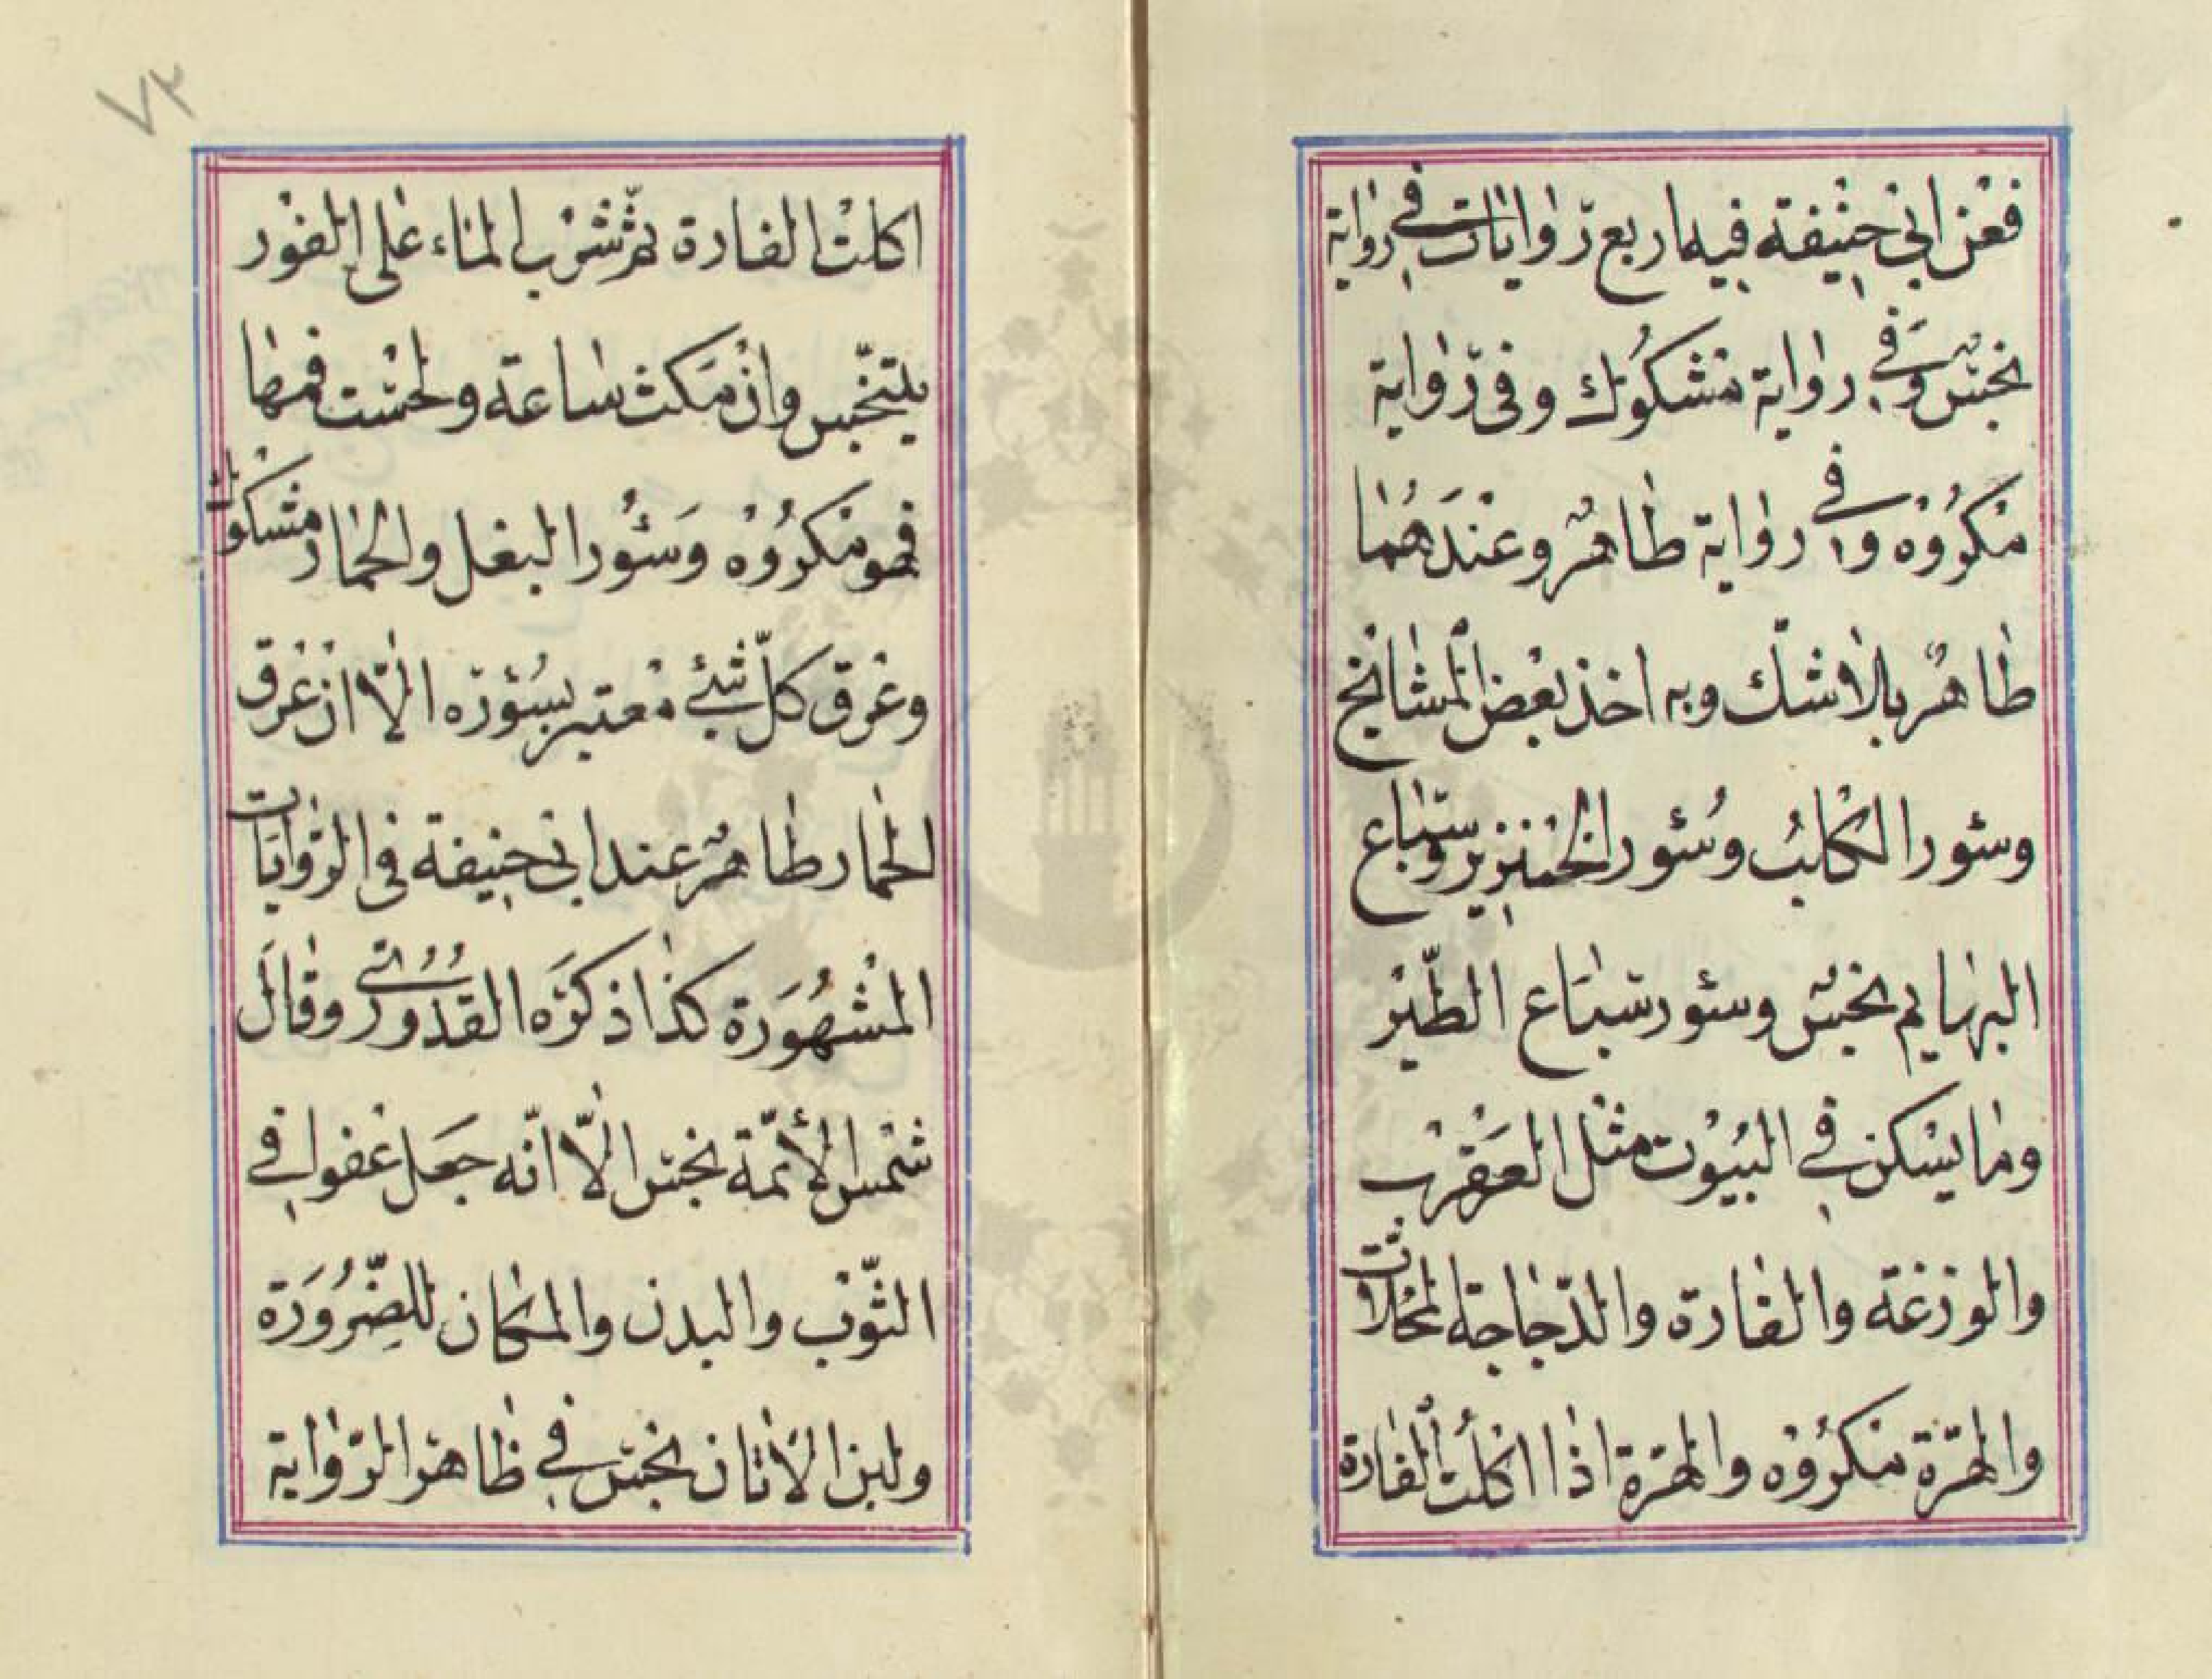 فعن ابي حنيفة فيه اربع روايات في رواية
نجس وفي رواية مشكوك وفي رواية
مكروه وفي رواية طاهر وعندهما
طاهر بلا شك وبه اخذ بعض المشايخ
وسئور الكلب وسئور الخنزير وسباع
البهايم نجس وسئور سباع الطير
وما يسكن في البيوت مثل العقرب
والوزغة والفارة والدجاجة المخلات
والهرة مكروه والهرة اذا اكلت الفارة
٧٢
اكلت الفارة ثم شرب الماء على الفور
يتنجس وان مكث ساعة ولحست فمها
فهو مكروه وسئور البغل والحمار مشكوك
وعرق كل شئ معتبر بسؤره الا ان عرق
الحمار طاهر عند ابي حنيفة في الروايات
المشهورة كذا ذكره القدوري وقال
شمس الأئمة نجس الا انه جعل عفوا في
الثوب والبدن والمكان للضرورة
ولبن الاتان نجس في ظاهر الرواية